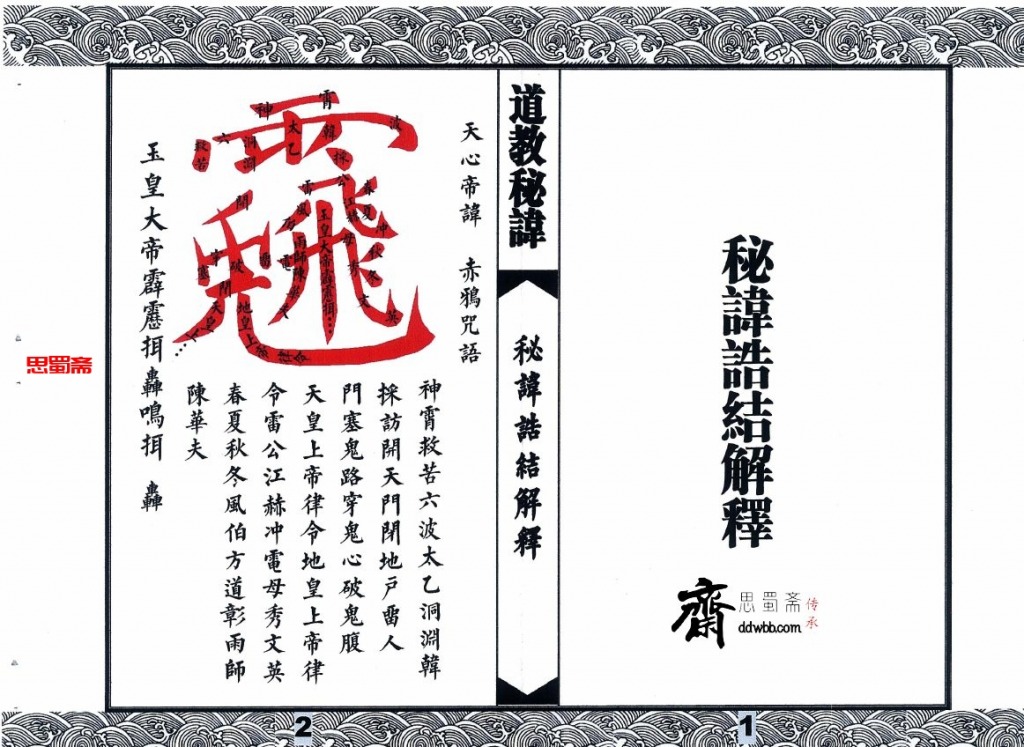 秘諱誥結解釋
思蜀斋
传承
ddwbb.com
1
道教秘諱
秘諱誥結解釋
天心帝諱 赤鴉咒語
神霄救苦六波太乙洞淵韓
採訪開天門閉地戶留人
門塞鬼路穿鬼心破鬼腹
天皇上帝律令地皇上帝律
令雷公江赫冲電母秀文英
春夏秋冬風伯方道彰雨師
陳華夫
玉皇大帝霹靂揖轟鳴揖 轟
2
思蜀斋